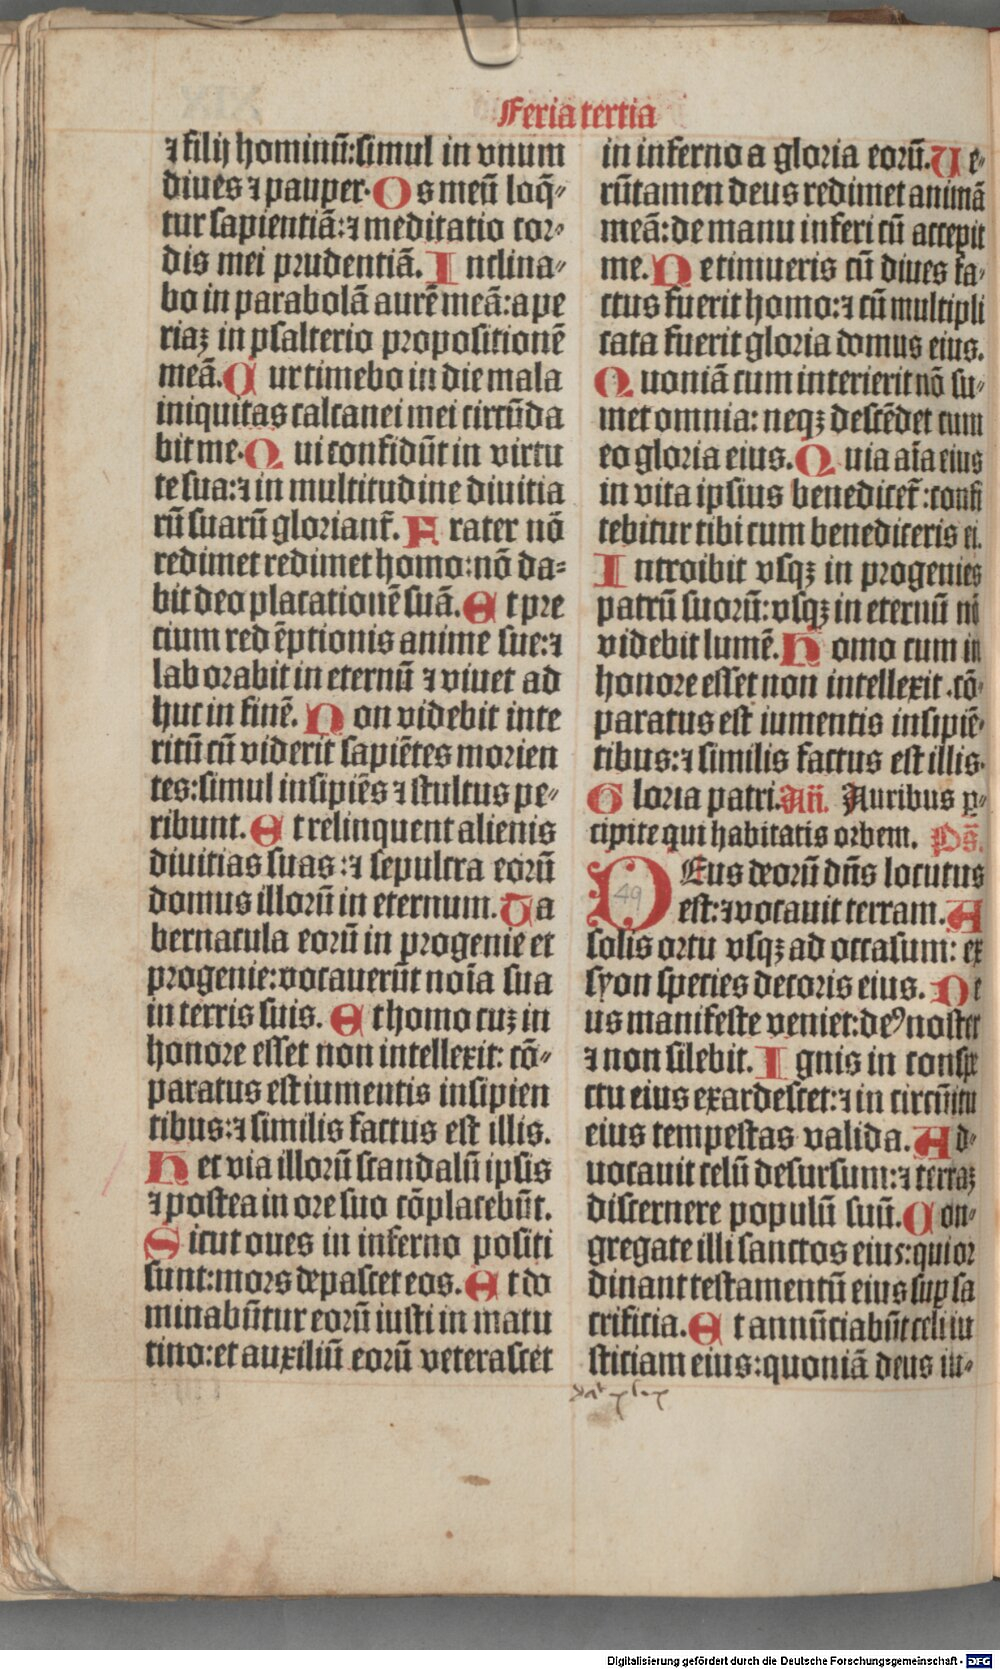 Feria tertia
⁊ filij hominū:simul in vnum
diues ⁊ pauper. Os meū loq̄⸗
tur sapientiā:⁊ meditatio cor⸗
dis mei prudentiā. Inclina⸗
bo in parabolā aurē meā:ape
riaꝫ in psalterio propositionē
meā. Cur timebo in die mala
iniquitas calcanei mei circūda
bit me. Qui confidūt in virtu
te sua:⁊ in multitudine diuitia
rū suarū gloriant̄. Frater nō
redimet redimet homo:nō da⸗
bit deo placationē suā. Et pre
cium redēptionis anime sue:⁊
laborabit in eternū ⁊ viuet ad
huc in finē. Non videbit inte
ritū cū viderit sapiētes morien
tes:simul insipiēs ⁊ stultus pe⸗
ribunt. Et relinquent alienis
diuitias suas:⁊ sepulcra eorū
domus illorū in eternum. Ta
bernacula eorū in progenie et
progenie:vocauerūt noīa sua
in terris suis. Et homo cuꝫ in
honore esset non intellexit: cō⸗
paratus est iumentis insipien
tibus:⁊ similis factus est illis.
Hec via illorū scandalū ipsis
⁊ postea in ore suo cōplacebūt.
Sicut oues in inferno positi
sunt:mors depascet eos. Et do
minabūtur eorū iusti in matu
tino:et auxiliū eorū veterascet
in inferno a gloria eorū. Ue⸗
rūtamen deus redimet animā
meā:de manu inferi cū accepit
me. Ne timueris cū diues fa⸗
ctus fuerit homo:⁊ cū multipli
cata fuerit gloria domus eius.
Quoniā cum interierit nō su⸗
met omnia: neqꝫ descēdet cum
eo gloria eius. Quia aīa eius
in vita ipsius benedicet̄:confi
tebitur tibi cum benediceris ei.
Introibit vsqꝫ in progenies
patrū suorū:vsqꝫ in eternū nō
videbit lumē. Homo cum in
honore esset non intellexit.cō⸗
paratus est iumentis insipiē⸗
tibus:⁊ similis factus est illis.
Gloria patri. Añ. Auribus ꝑ⸗
cipite qui habitatis orbem. Ps̄.
DEus deorū dn̄s locutus
49
est:⁊ vocauit terram. A
solis ortu vsqꝫ ad occasum: ex
syon species decoris eius. De
us manifeste veniet:deꝰ noster
⁊ non silebit. Ignis in conspe
ctu eius exardescet:⁊ in circūitu
eius tempestas valida. Ad⸗
uocauit celū desursum:⁊ terraꝫ
discernere populū suū. Con⸗
gregate illi sanctos eius:qui or
dinant testamentū eius suꝑ sa
crificia. Et annūciabūt celi iu
sticiam eius:quoniā deus iu⸗
Digitalisierung gefördert durch die Deutsche Forschungsgemeinschaft - DFG